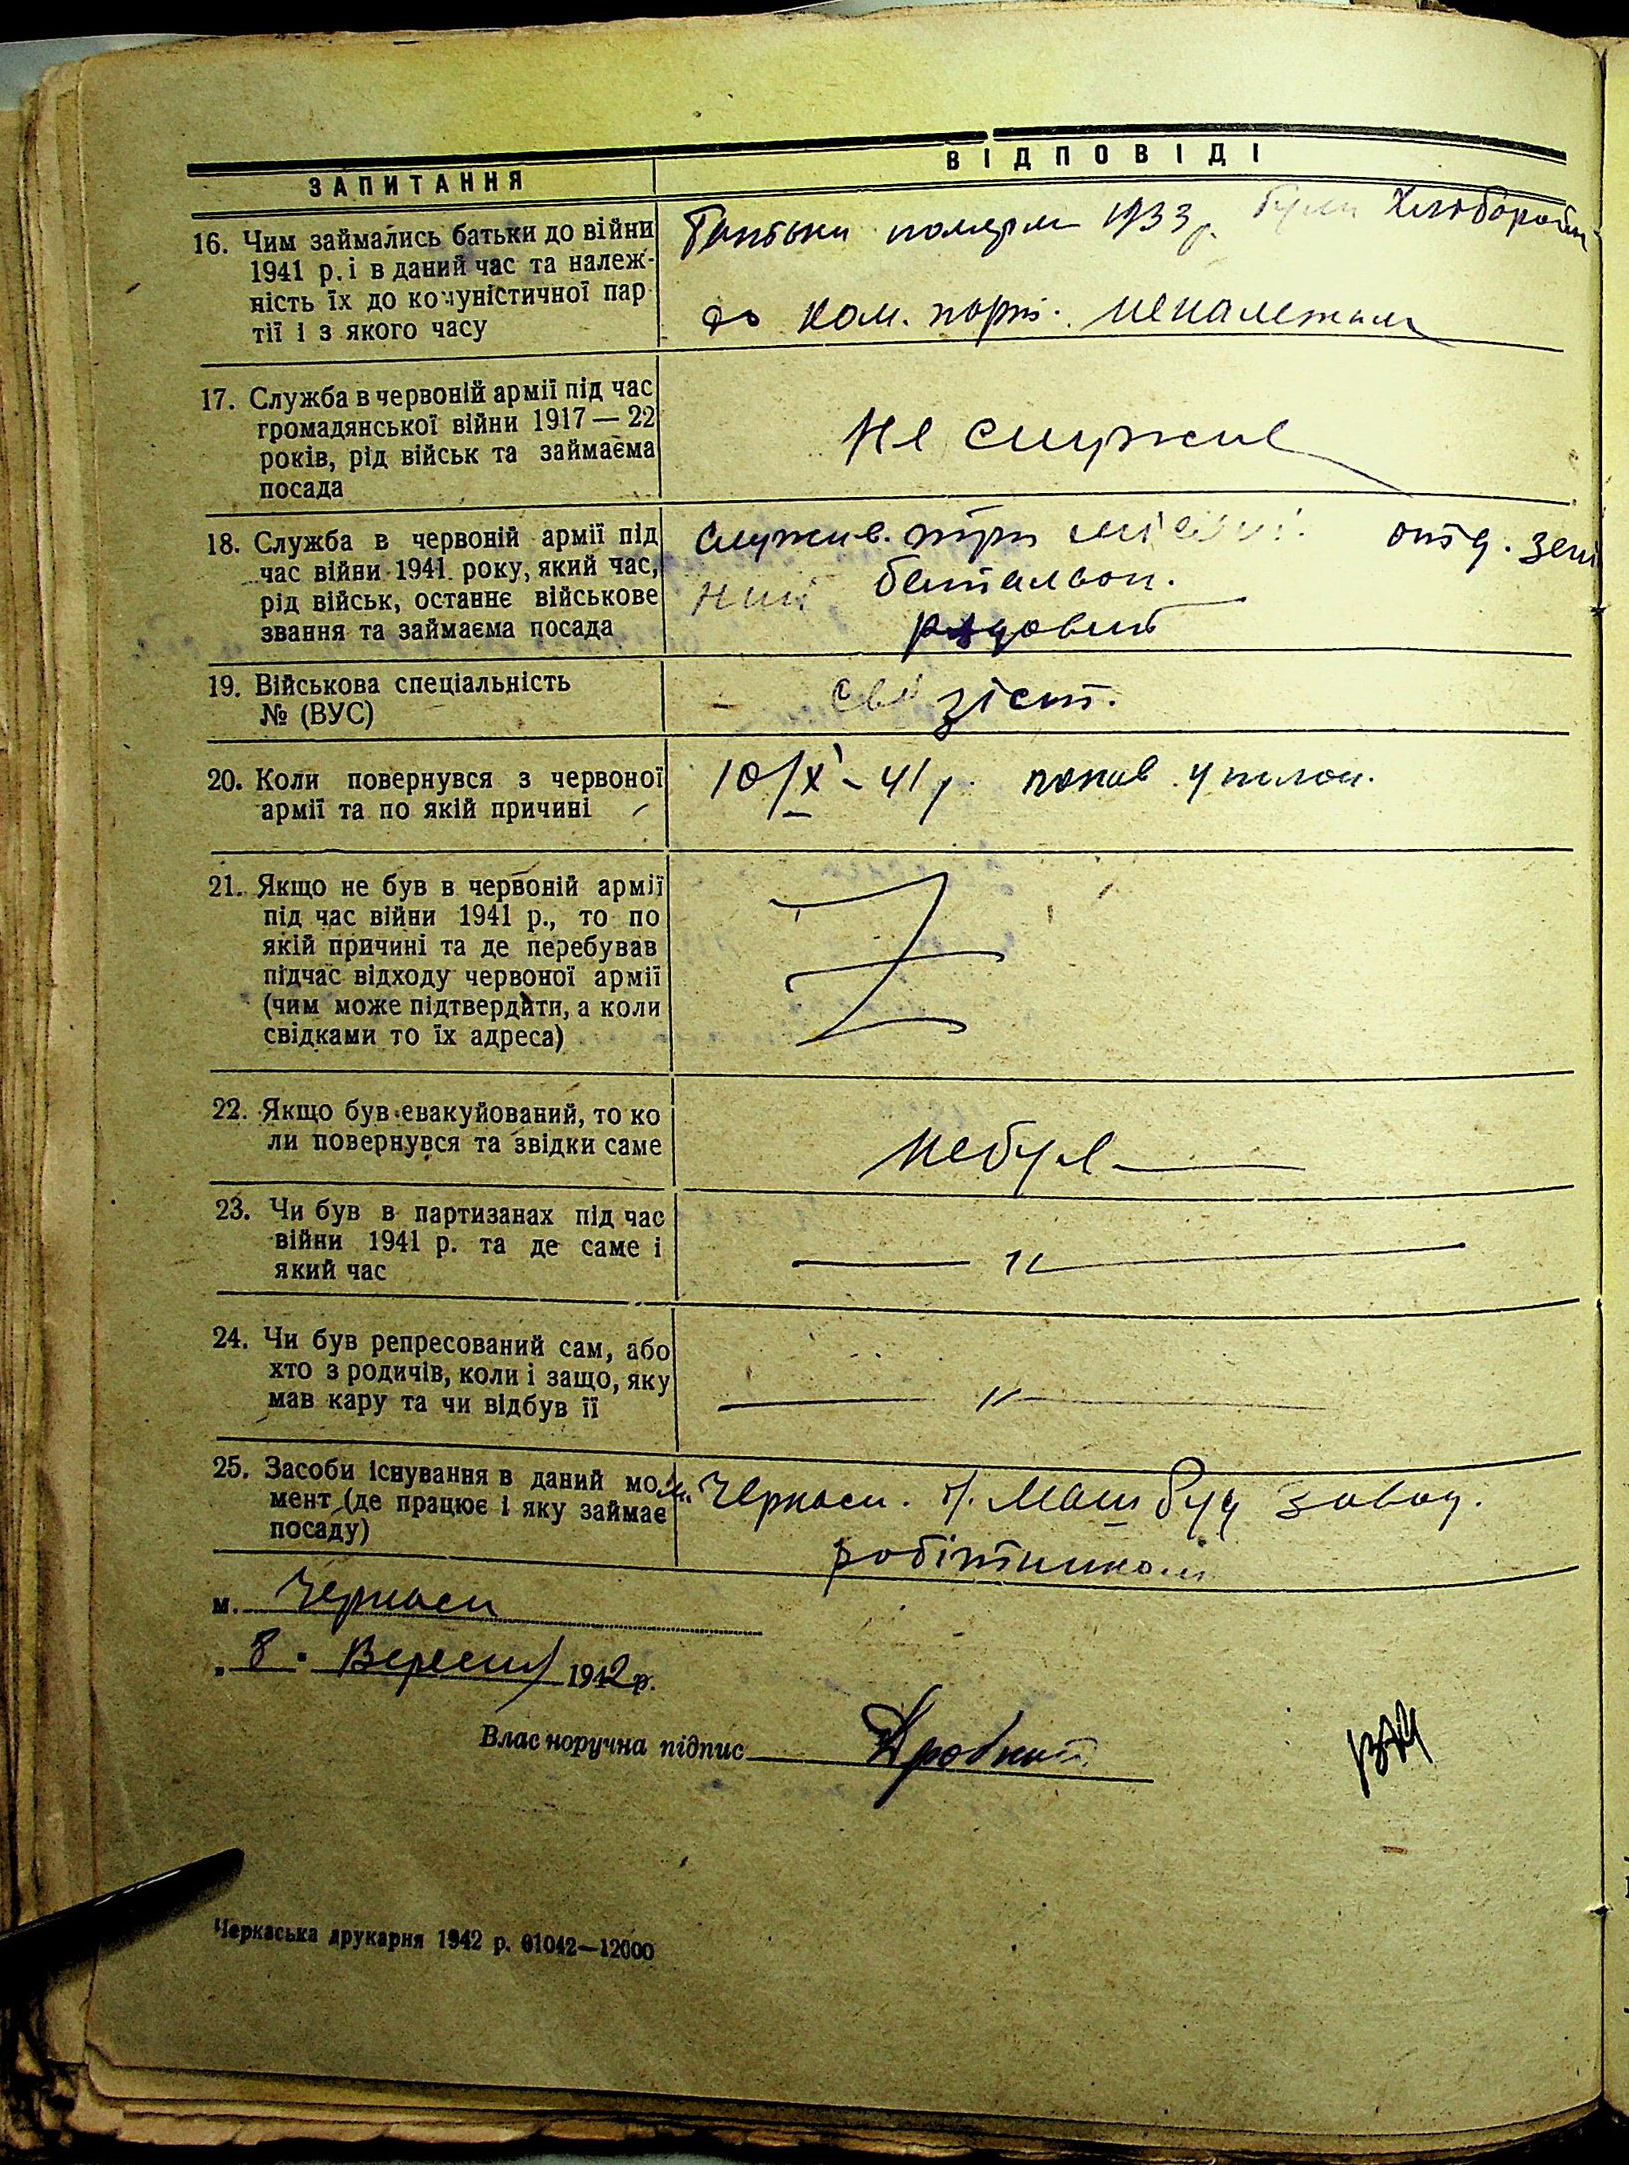 ЗАПИТАННЯ
ВІДПОВІДІ
16. Чим займались батьки до війни
1941 р. і в даний час та належ-
ність їх до комуністичної пар
тії і з якого часу
Батьки померли 1933 р. були Хлібороби
до ком. парт. неналежали
17. Служба в червоній армії під час
громадянської війни 1917 — 22
років, рід військ та займаєма
посада
Не служив
18. Служба в червоній армії під
час війни 1941 року, який час,
рід військ, останнє військове
звання та займаєма посада
служив. три місяці. отд. зені
ний батальон.
рядовий
19. Військова спеціальність
№ (ВУС)
свізіст.
20. Коли повернувся з червоної
армії та по якій причині
10/X - 41 р. попав у плон.
21. Якщо не був в червоній армії
під час війни 1941 р., то по
якій причині та де перебував
підчас відходу червоної армії
(чим може підтвердити, а коли
свідками то їх адреса)
22. Якщо був евакуйований, то ко
ли повернувся та звідки саме
небув
23. Чи був в партизанах під час
війни 1941 р. та де саме і
який час
— " —
24. Чи був репресований сам, або
хто з родичів, коли і защо, яку
мав кару та чи відбув її
— " —
25. Засоби існування в даний мо
мент (де працює і яку займає
посаду)
м. Черкаси. Машбуд завод.
робітником
м. Черкаси
„ 8 " Вересня 1942 р.
Власноручна підпис
Черкаська друкарня 1942 р. 01042—12000